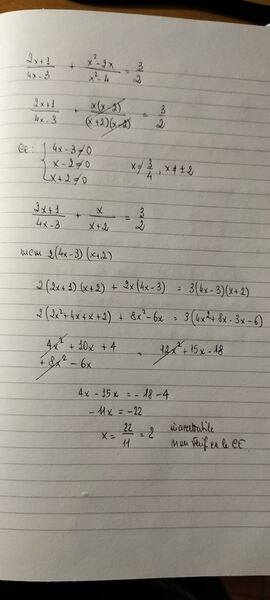 (2x+1)/(4x-3) + (x²-2x)/(x²-4) = 3/2
(2x+1)/(4x-3) + x(x-2)/((x+2)(x-2)) = 3/2
CE: { 4x-3≠0
x-2≠0 x≠3/4, x≠±2
x+2≠0
(2x+1)/(4x-3) + x/(x+2) = 3/2
mcm 2(4x-3)(x+2)
2(2x+1)(x+2) + 2x(4x-3) = 3(4x-3)(x+2)
2(2x²+4x+x+2) + 8x²-6x = 3(4x²+8x-3x-6)
4x²+10x+4 = 12x²+15x-18
+8x²-6x
4x-15x = -18-4
-11x = -22
x = 22/11 = 2 inaccettabile
non verif ca le CE